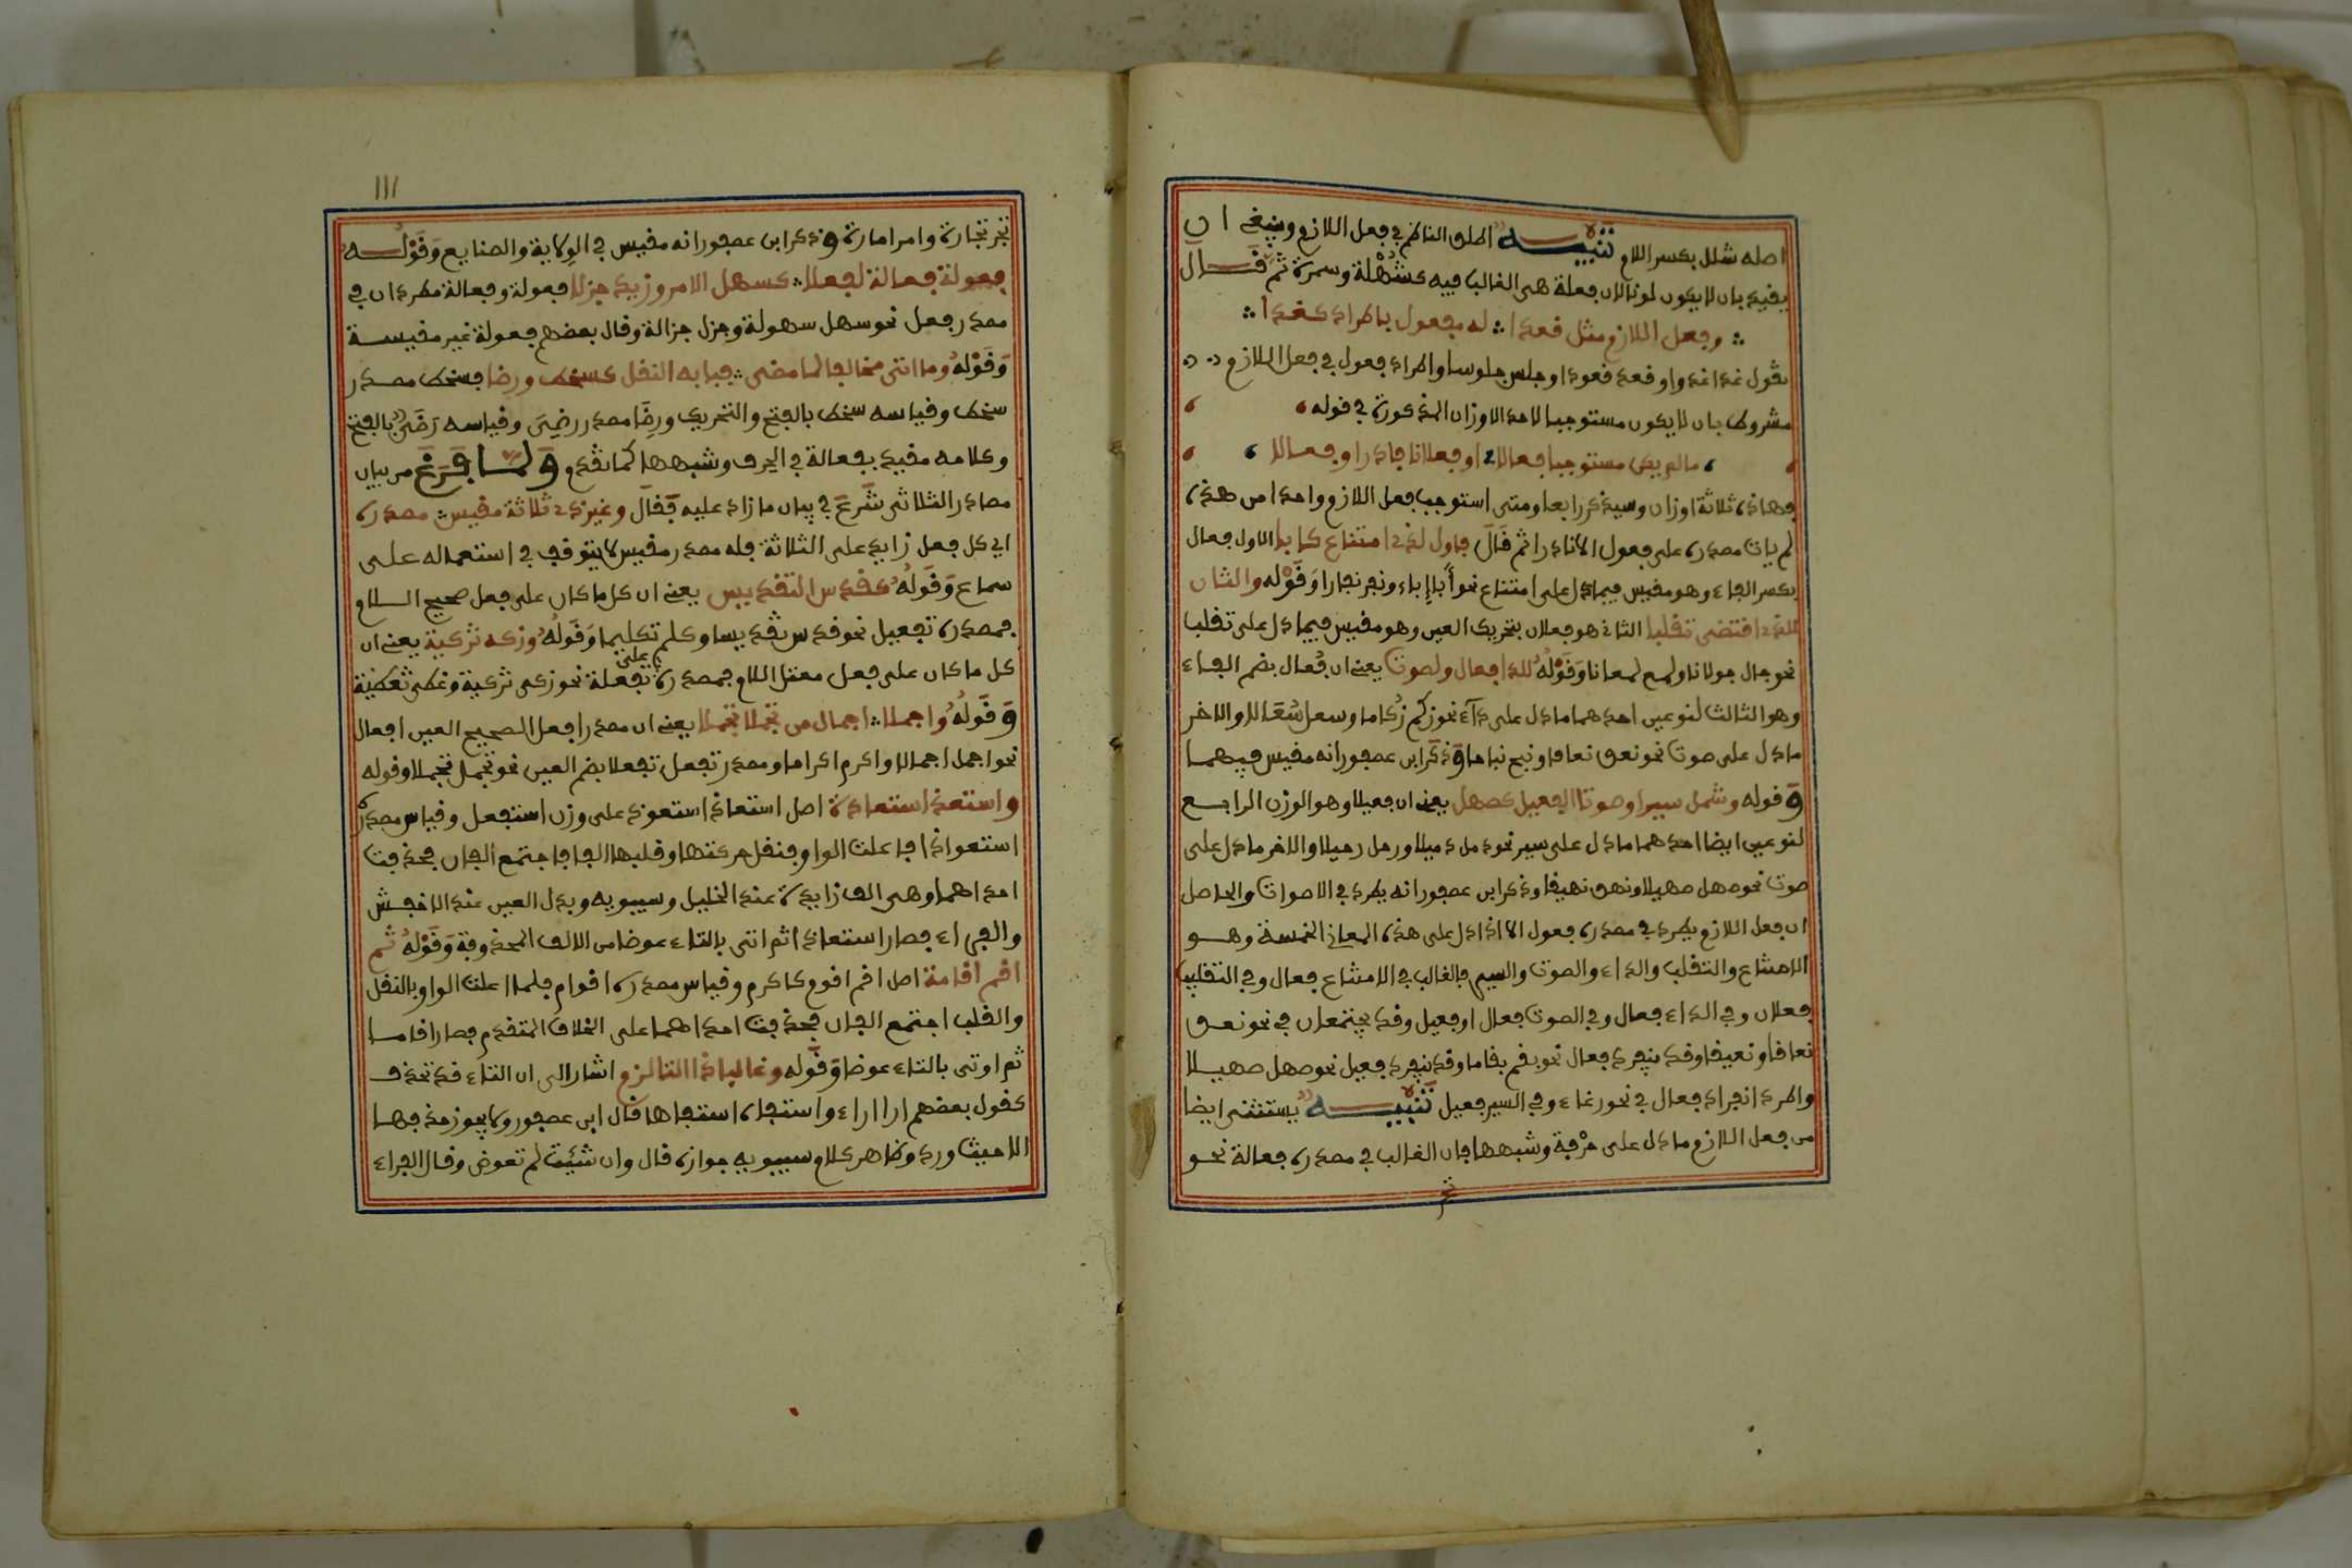 اصله شلل بكسر اللام تنبيه اطلق الناظم في فعل اللازم وينبغي ان
يقيد بان لا يكون لونا لان فعلة هي الغالب فيه كشُهْلة وسمرة ثم قال
وفعل اللازم مثل قعدا له فعول باطراد كغدا
تقول غدا غدوا وقعد قعودا وجلس جلوسا واطراد فعول في فعل اللازم
مشروط بان لا يكون مستوجبا لاحد الاوزان المذكورة في قوله
ما لم يكن مستوجبا فعالا او فعلانا فادر او فعالا
فهاذه ثلاثة اوزان وسيذكر رابعا ومتى استوجب فعل اللازم واحدا من هذه
لم يات مصدره على فعول الا نادرا ثم قال فاول لذي امتناع كابا الاول فعال
بكسر الفاء وهو مقيس فيما دل على امتناع نحو أبا إباء ونفر نفارا وقَوْله والثان
للذي اقتضى تقلبا الثاني هو فعلان بتحريك العين وهو مقيس فيما دل على تقلب
نحو جال جولانا ولمع لمعانا وقَوْلُه للدا فعال ولصوت يعني ان فُعال بضم الفاء
وهو الثالث لنوعين احدهما ما دل على داء نحو زكم زُكاما وسعل سُعَالا والاخر
ما دل على صوت نحو نعق نعاقا ونبح نباحا وذكر ابن عصفور انه مقيس فيهما
وقوله وشمل سيرا وصوتا الفعيل كصهل يعني ان فعيلا وهو الوزن الرابع
لنوعين ايضا احدهما ما دل على سير نحو ذمل ذميلا ورحل رحيلا والاخر ما دل على
صوت نحو صهل صهيلا ونهق نهيقا وذكر ابن عصفور انه يطرد في الاصوات والحاصل
ان فعل اللازم يطرد في مصدره فعول الا اذا دل على هذه المعاني الخمسة وهو
الامتناع والتقلب والداء والصوت والسير فالغالب في الامتناع فعال وفي التقلب
فعلان وفي الداء فعال وفي الصوت فعال او فعيل وقد يجتمعان في نحو نعق
نعاقا ونعيقا وقد ينفرد فعال نحو بغم بغاما وقد ينفرد فعيل نحو صهل صهيلا
واطرد انفراد فعال في نحو رغاء وفي السير فعيل تنبيه يستثنى ايضا
من فعل اللازم ما دل على حرْفة وشبهها فان الغالب في مصدره فعالة نحو
تجر
١١١
تجر تجارة وامر امارة وذكر ابن عصفور انه مقيس في الولاية والصنايع وقَوْلُه
فعولة فعالة لفعلا كسهل الامر وزيد جزلا فعولة وفعالة مطردان في
مصدر فعل نحو سهل سهولة وجزل جزالة وقال بعضهم فعولة غير مقيسة
وقَوْلهُ وما اتى مخالفا لما مضى فبابه النقل كسخط ورضا فسخط مصدر
سخط وقياسه سخط بالفتح والتحريك ورِضًا مصدر رضِيَ وقياسه رَضَى بالفتح
وكلامه مقيد بفعالة في الحرف وشبهها كما تقدم ولما فرغ من بيان
مصادر الثلاثي شرع في بيان ما زاد عليه فقال وغير ذي ثلاثة مقيس مصدره
اي كل فعل زايد على الثلاثة فله مصدر مقيس لا يتوقف في استعماله على
سماع وقَوْلُهُ كقدس التقديس يعني ان كل ما كان على فعل صحيح اللام
فمصدره تفعيل نحو قدس تقديسا وكلم تكليما وقَوْلُهُ وزكه تزكية يعني ان
كل ما كان على فعل معتل اللام فمصدره على تفعلة نحو زكى تزكية وغطى تغطية
وقَوْلُه واجملا اجمال من تجملا تجملا يعني ان مصدر افعل الصحيح العين افعال
نحو اجمل اجمالا واكرم اكراما ومصدر تفعل تفعلا بضم العين نحو تجمل تجملا وقوله
واستعذ استعاذة اصل استعاذ استعوذ على وزن استفعل وقياس مصدره
استعواذا فاعلت الواو فنقل حركتها وقلبها الفا فاجتمع الفان فحذفت
احداهما وهي الف زايدة عند الخليل وسيبويه وبدل العين عند الاخفش
والفراء فصار استعاذا ثم اتى بالتاء عوضا من الالف المحذوفة وقَوْلُهُ ثم
اقم اقامة اصل اقم اقوم كاكرم وقياس مصدره اقوام فلما اعلت الواو بالنقل
والقلب اجتمع الفان فحذفت احداهما على الخلاف المتقدم فصار اقاما
ثم اوتى بالتاء عوضا وقَوله وغالبا ذا التا لزم اشار الى ان التاء قد تحذف
كقول بعضهم ارا اراء واستفاه استفاها قال ابن عصفور ولا يجوز حذفها
الا حيث ورد وظاهر كلام سيبويه جوازه قال وان شئت لم تعوض وقال الفراء